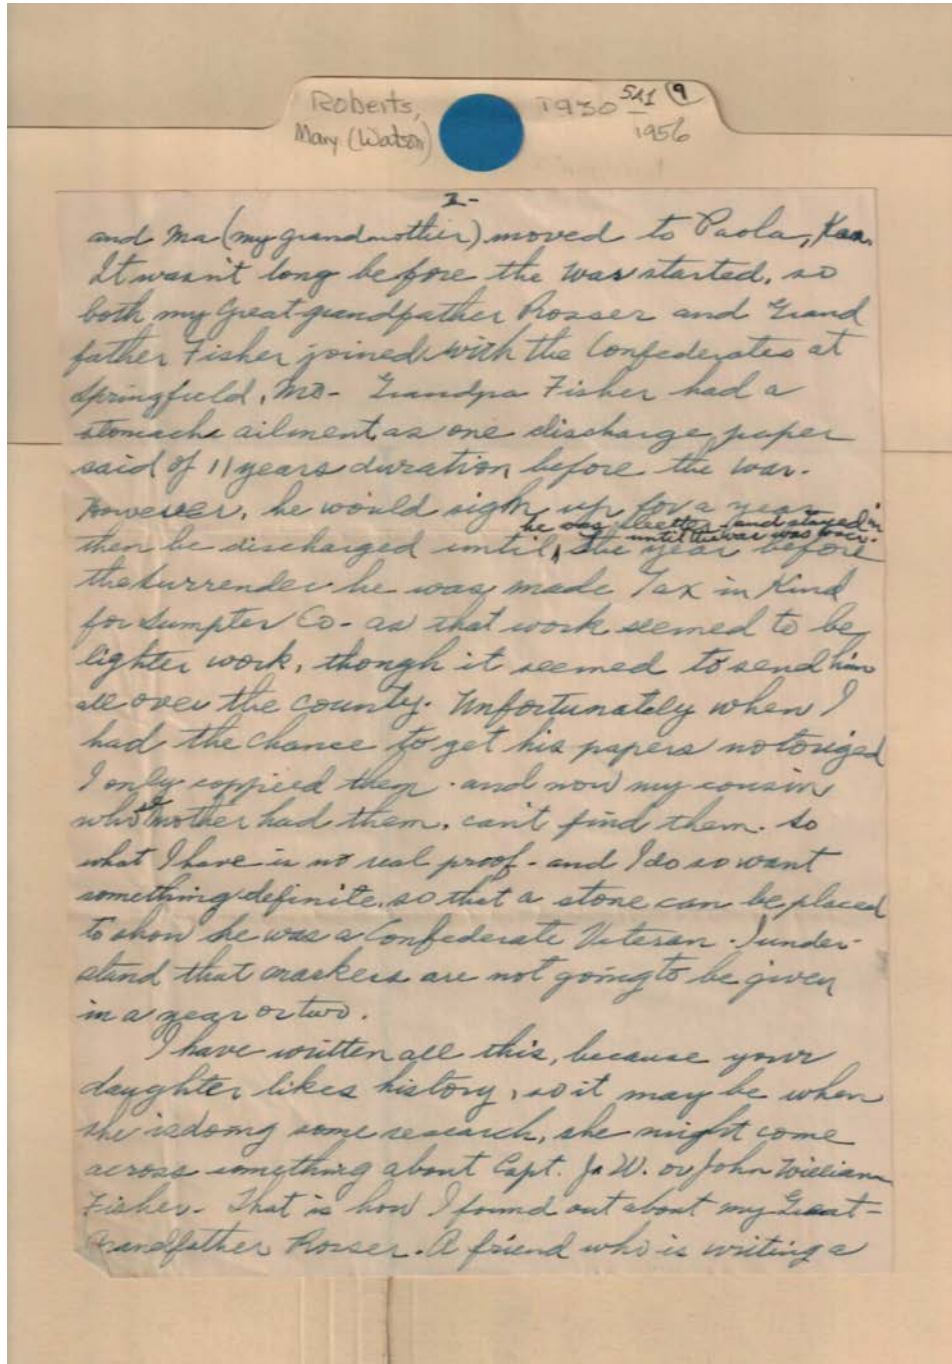 Roberts,
Mary (Watson)
1930 - 1956
SA1 9
2-
and Ma (my grandmother) moved to Paola, Kas.
It wasn't long before the war started, so
both my Great grandfather Rosser and Grand
father Fisher joined with the Confederates at
Springfield, Mo- Grandpa Fisher had a
stomach ailment, as one discharge paper
said of 11 years duration before the war.
However, he would sign up for a year
he was better and stayed in
until the war was over.
then be discharged until, the year before
the surrender he was made Tax in Kind
for Sumpter Co- as that work seemed to be
lighter work, though it seemed to send him
all over the county. Unfortunately when I
had the chance to get his papers notorized
I only coppied them - and now my cousin
who's mother had them, can't find them. So
what I have is no real proof - and I do so want
something definite, so that a stone can be placed
to show he was a Confederate Veteran. I under-
stand that markers are not going to be given
in a year or two.
I have written all this, because your
daughter likes history, so it may be when
she is doing some research, she might come
across something about Capt. J. W. or John William
Fisher. That is how I found out about my Great-
Grandfather Rosser. A friend who is writing a